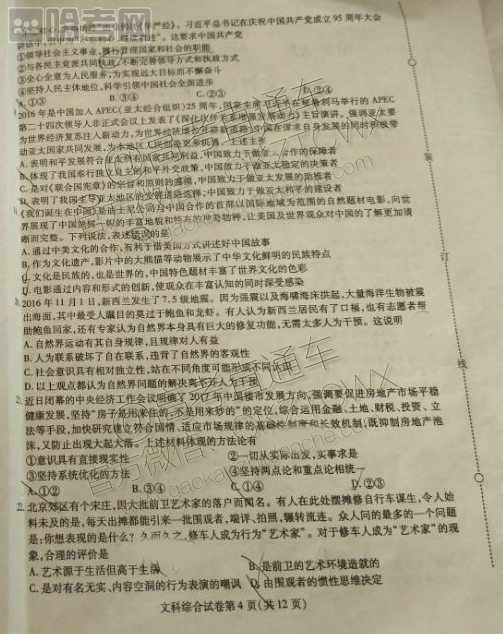 哈考网
。习近平总书记在庆祝中国共产党成立95周年大会
这要求中国共产党
①领导社会主义事业,履行管理国家和社会的职能
②与各民主党派共同执政,不断完善领导方式和执政方式
③全心全意为人民服务,为实现远大目标而不懈奋斗
④坚持人民主体地位,科学引领中国社会全面进步
A.①③ B.③④ C.①② D.②③
2016年是中国加入APEC(亚太经合组织)25周年,国家主席
第二十四次领导人非正式会议上发表了
世界经济复苏注入新动力,为世界经济增长
动亚太国家共同发展,为本地区人民创造更多机遇。上述主
A.表明和平发展符合亚太所有国家共同利益,中国致力于做亚太合作的保障者
B.体现了我国奉行独立自主的和平外交政策,中国致力于做亚太稳定的决策者
C.是对《联合国宪章》的宗旨和原则的遵循,中国致力于做亚太发展的助推者
D.表明了我国主导亚太地区的发展道路选择,中国致力于做亚太和平的建设者
《我们诞生在中国》是迪士尼公司与中国合作的首部以国际地域为范围的自然题材电影,向世
界展现了中国独树一帜的丰富地貌和特有的种类物种,让美国及世界观众对中国的了解更加清
晰而完整。下列说法,表述错误的是
A.通过中美文化的合作,有利于借美国方式讲述好中国故事
B.作为文化遗产,影片中的大熊猫等动物展示了中华文化鲜明的民族特点
C.文化是民族的,也是世界的,中国特色题材丰富了世界文化的色彩
D.电影通过内容和形式的创新,使观众在丰富认知的同时深受感染
2016年11月1日,新西兰发生了7.5级地震。因为强震以及海啸海床拱起,大量海洋生物被震
出海面,其中最受人瞩目的莫过于鲍鱼和龙虾。有人认为新西兰居民有了口福,也有志愿者帮
助鲍鱼回家,还有专家认为自然界本身具有巨大的修复功能,无需太多人为干预。这说明
A.自然界运动有其自身规律,且规律对人有益
B.人为联系破坏了自在联系,违背了自然界的客观性
C.社会意识具有相对独立性,站在不同角度可能形成不同认识
D.以上观点都认为自然界问题的解决离不开人为干预
近日闭幕的中央经济工作会议明确了2017年中国楼市发展方向,强调要促进房地产市场平稳
健康发展,坚持“房子是用来住的,不是用来炒的”的定位,综合运用金融、土地、财税、投资、立
法等手段,加快研究建立符合国情、适应市场规律的基础性制度和长效机制,既抑制房地产泡
沫,又防止出现大起大落。上述材料体现的方法论有
①意识具有直接现实性 ②一切从实际出发,实事求是
③坚持系统优化的方法 ④坚持两点论和重点论相统一
A.①② B.③④ C.①③ D.②④
北京郊区有个宋庄,因大批前卫艺术家的落户而闻名。有人在此处摆摊修自行车谋生,令人始
料未及的是,每天出摊都能引来一批围观者,端详、拍照,辗转流连。众人问的最多的一个问题
是:你想表现的是什么?久而久之,修车人成为行为“艺术家”。对于修车人成为“艺术家”的现
象,合理的评价是
A.艺术源于生活但高于生活 B.是前卫的艺术环境造就的
C.是对有名无实、内容空洞的行为表演的嘲讽 D.由围观者的惯性思维决定
文科综合试卷第4页(共12页)
装
订
线